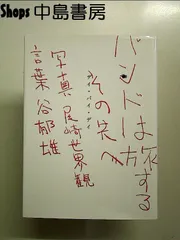 Shops 中島書房
バンドは旅する
その先へ
写真 尾崎世界観
言葉 谷郁雄